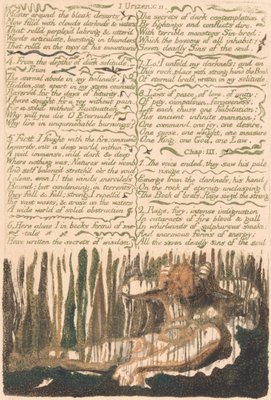 I Urizen: C II
Muster around the bleak desarts
Now fill'd with clouds, darkness & waters
That roll'd perplex'd labring & utter'd
Words articulate, bursting in thunders
That roll'd on the tops of his mountains
4. From the depths of dark solitude.
From
The eternal abode in my holiness,
Hidden, set apart in my stern counsels
Reserv'd for the days of futurity,
I have sought for a joy without pain,
For a solid without fluctuation
Why will you die O Eternals?
Why live in unquenchable burnings?
5 First I fought with the fire; consum'd
Inwards, into a deep world within:
A void immense, wild dark & deep,
Where nothing was; Natures wide womb
And self balanc'd stretch'd o'er the void
I alone, even I! the winds merciless
Bound; but condensing, in torrents
They fall & fall; strong, I repell'd
The vast waves, & arose on the waters
A wide world of solid obstruction
6. Here alone I in books formd of me-
-tals
Have written the secrets of wisdom
The secrets of dark contemplation
By fightings and conflicts dire,
With terrible monsters Sin-bred:
Which the bosoms of all inhabit;
Seven deadly Sins of the soul.
7. Lo! I unfold my darkness: and on
This rock, place with strong hand the Book
Of eternal brass, written in my solitude.
8. Laws of peace, of love, of unity:
Of pity, compassion, forgiveness.
Let each chuse one habitation:
His ancient infinite mansion:
One command, one joy, one desire,
One curse, one weight, one measure
One King, one God, one Law.
Chap: III.
1. The voice ended, they saw his pale
visage
Emerge from the darkness; his hand
On the rock of eternity unclasping
The Book of brass. Rage siez'd the strong
2. Rage, fury, intense indignation
In cataracts of fire blood & gall
In whirlwinds of sulphurous smoke:
And enormous forms of energy;
All the seven deadly sins of the soul